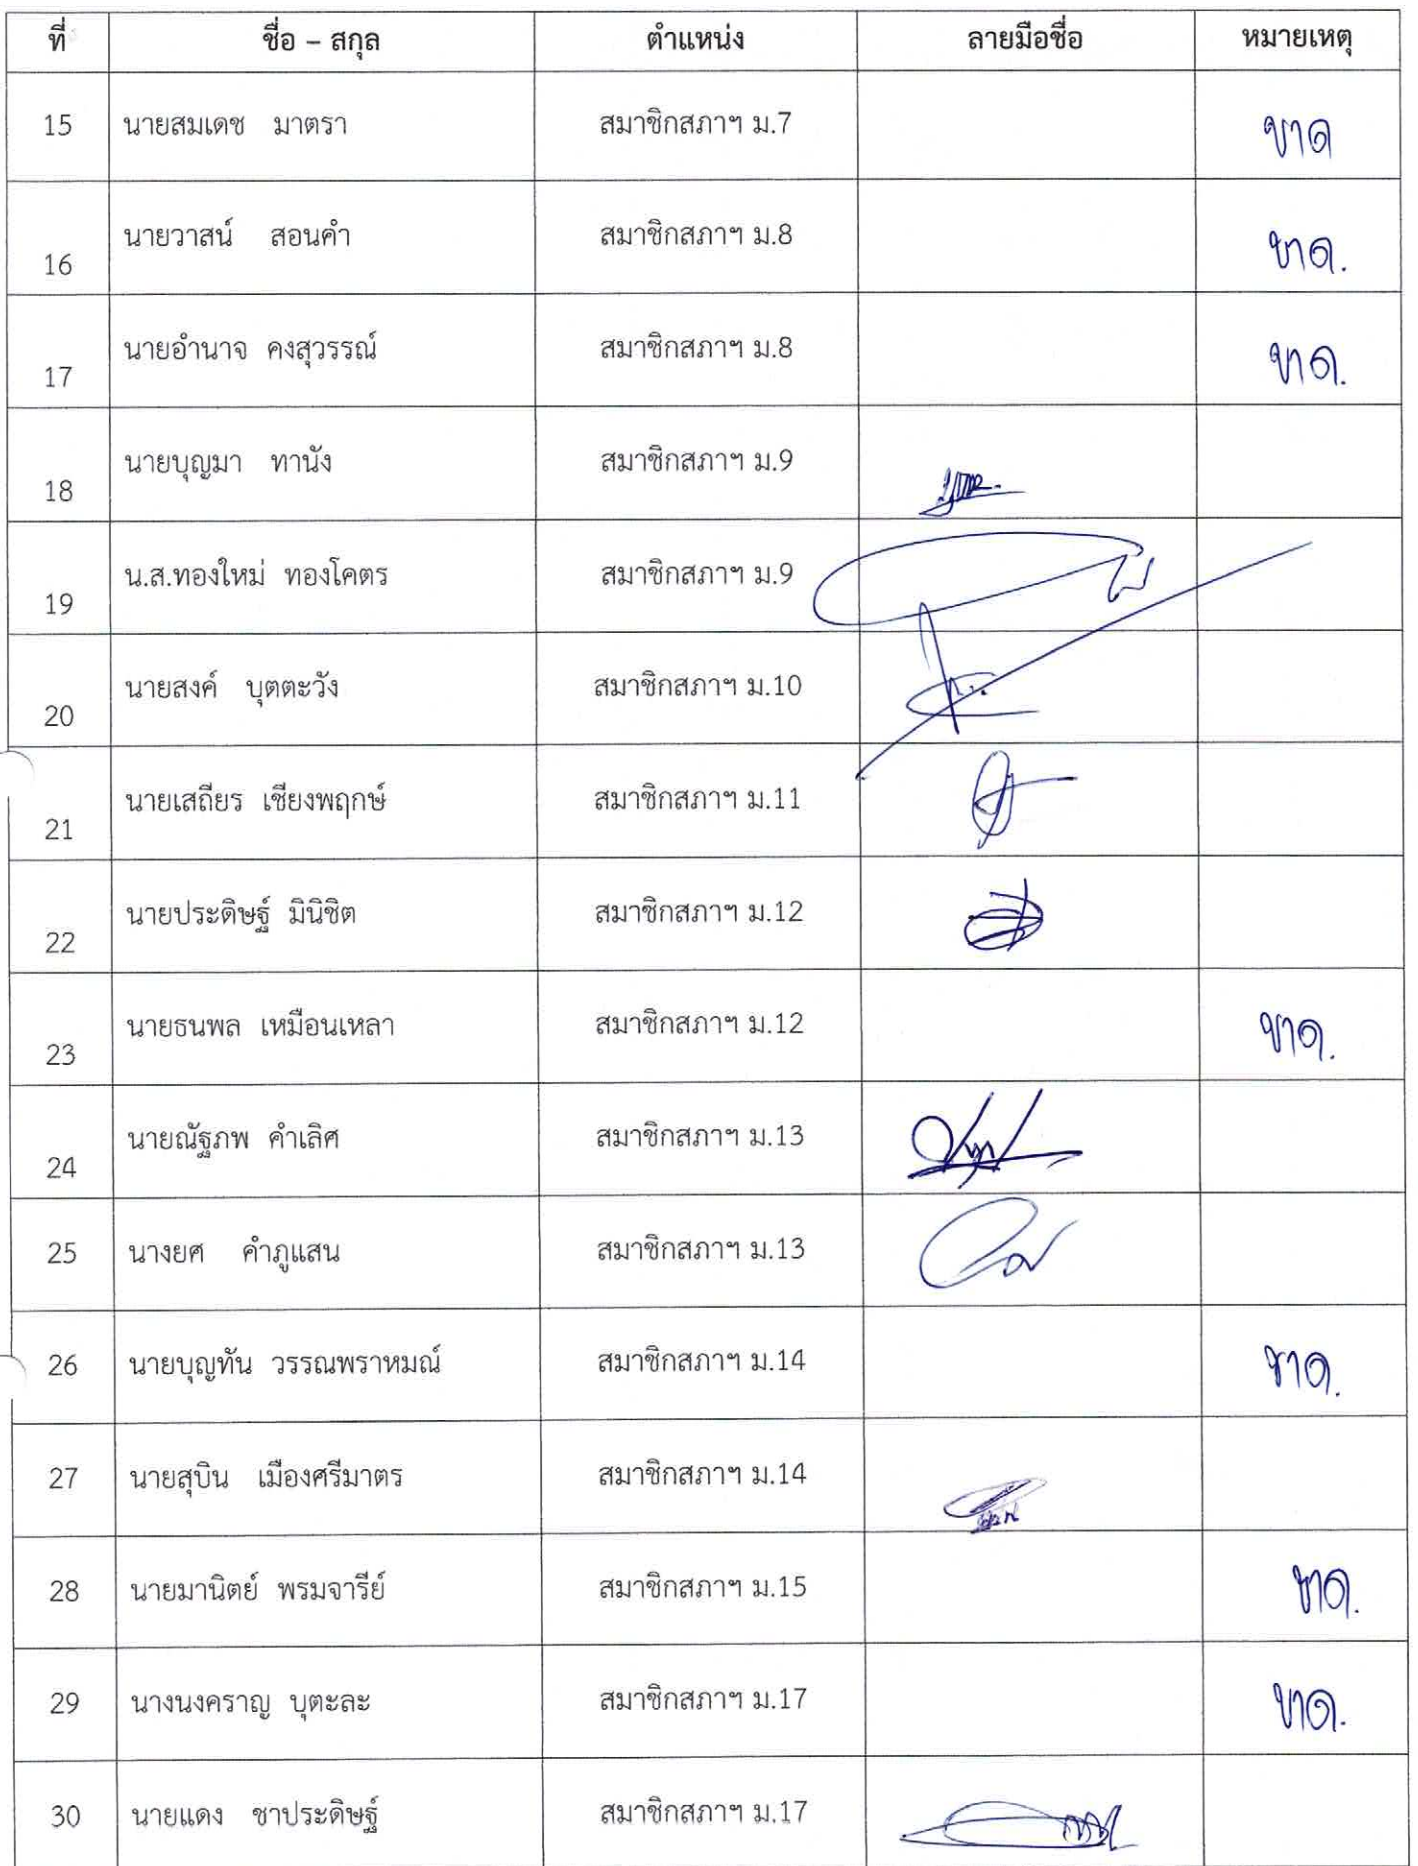 ที่ ชื่อ – สกุล ตำแหน่ง ลายมือชื่อ หมายเหตุ
15 นายสมเดช มาตรา สมาชิกสภาฯ ม.7 ขาด
16 นายวาสน์ สอนคำ สมาชิกสภาฯ ม.8 ขาด.
17 นายอำนาจ คงสุวรรณ์ สมาชิกสภาฯ ม.8 ขาด.
18 นายบุญมา ทานัง สมาชิกสภาฯ ม.9
19 น.ส.ทองใหม่ ทองโคตร สมาชิกสภาฯ ม.9
20 นายสงค์ บุตตะวัง สมาชิกสภาฯ ม.10
21 นายเสถียร เชียงพฤกษ์ สมาชิกสภาฯ ม.11
22 นายประดิษฐ์ มินิชิต สมาชิกสภาฯ ม.12
23 นายธนพล เหมือนเหลา สมาชิกสภาฯ ม.12 ขาด.
24 นายณัฐภพ คำเลิศ สมาชิกสภาฯ ม.13
25 นางยศ คำภูแสน สมาชิกสภาฯ ม.13
26 นายบุญทัน วรรณพราหมณ์ สมาชิกสภาฯ ม.14 ขาด.
27 นายสุบิน เมืองศรีมาตร สมาชิกสภาฯ ม.14
28 นายมานิตย์ พรมจารีย์ สมาชิกสภาฯ ม.15 ขาด.
29 นางนงคราญ บุตะละ สมาชิกสภาฯ ม.17 ขาด.
30 นายแดง ชาประดิษฐ์ สมาชิกสภาฯ ม.17